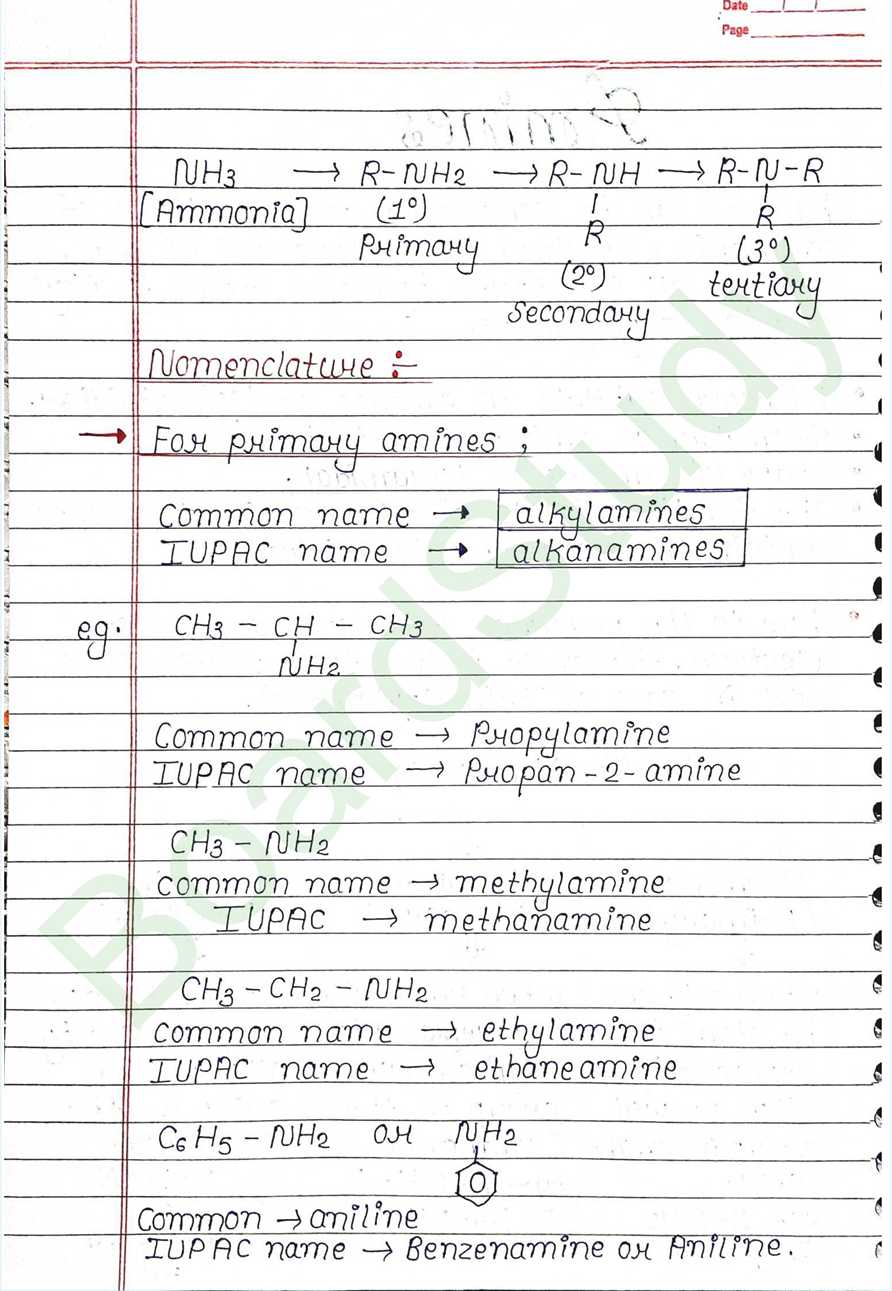 Date
Page
NH3 → R-NH2 → R-NH → R-N-R
[Ammonia] (1°) R R
Primary (2°) (3°)
secondary tertiary
Nomenclature :-
→ For primary amines ;
Common name → alkylamines
IUPAC name → alkanamines
eg. CH3 - CH - CH3
NH2
Common name → Propylamine
IUPAC name → Propan-2-amine
CH3 - NH2
common name → methylamine
IUPAC → methanamine
CH3 - CH2 - NH2
Common name → ethylamine
IUPAC name → ethaneamine
C6H5 - NH2 or NH2
Common → aniline
IUPAC name → Benzenamine or Aniline.
BoardStudy